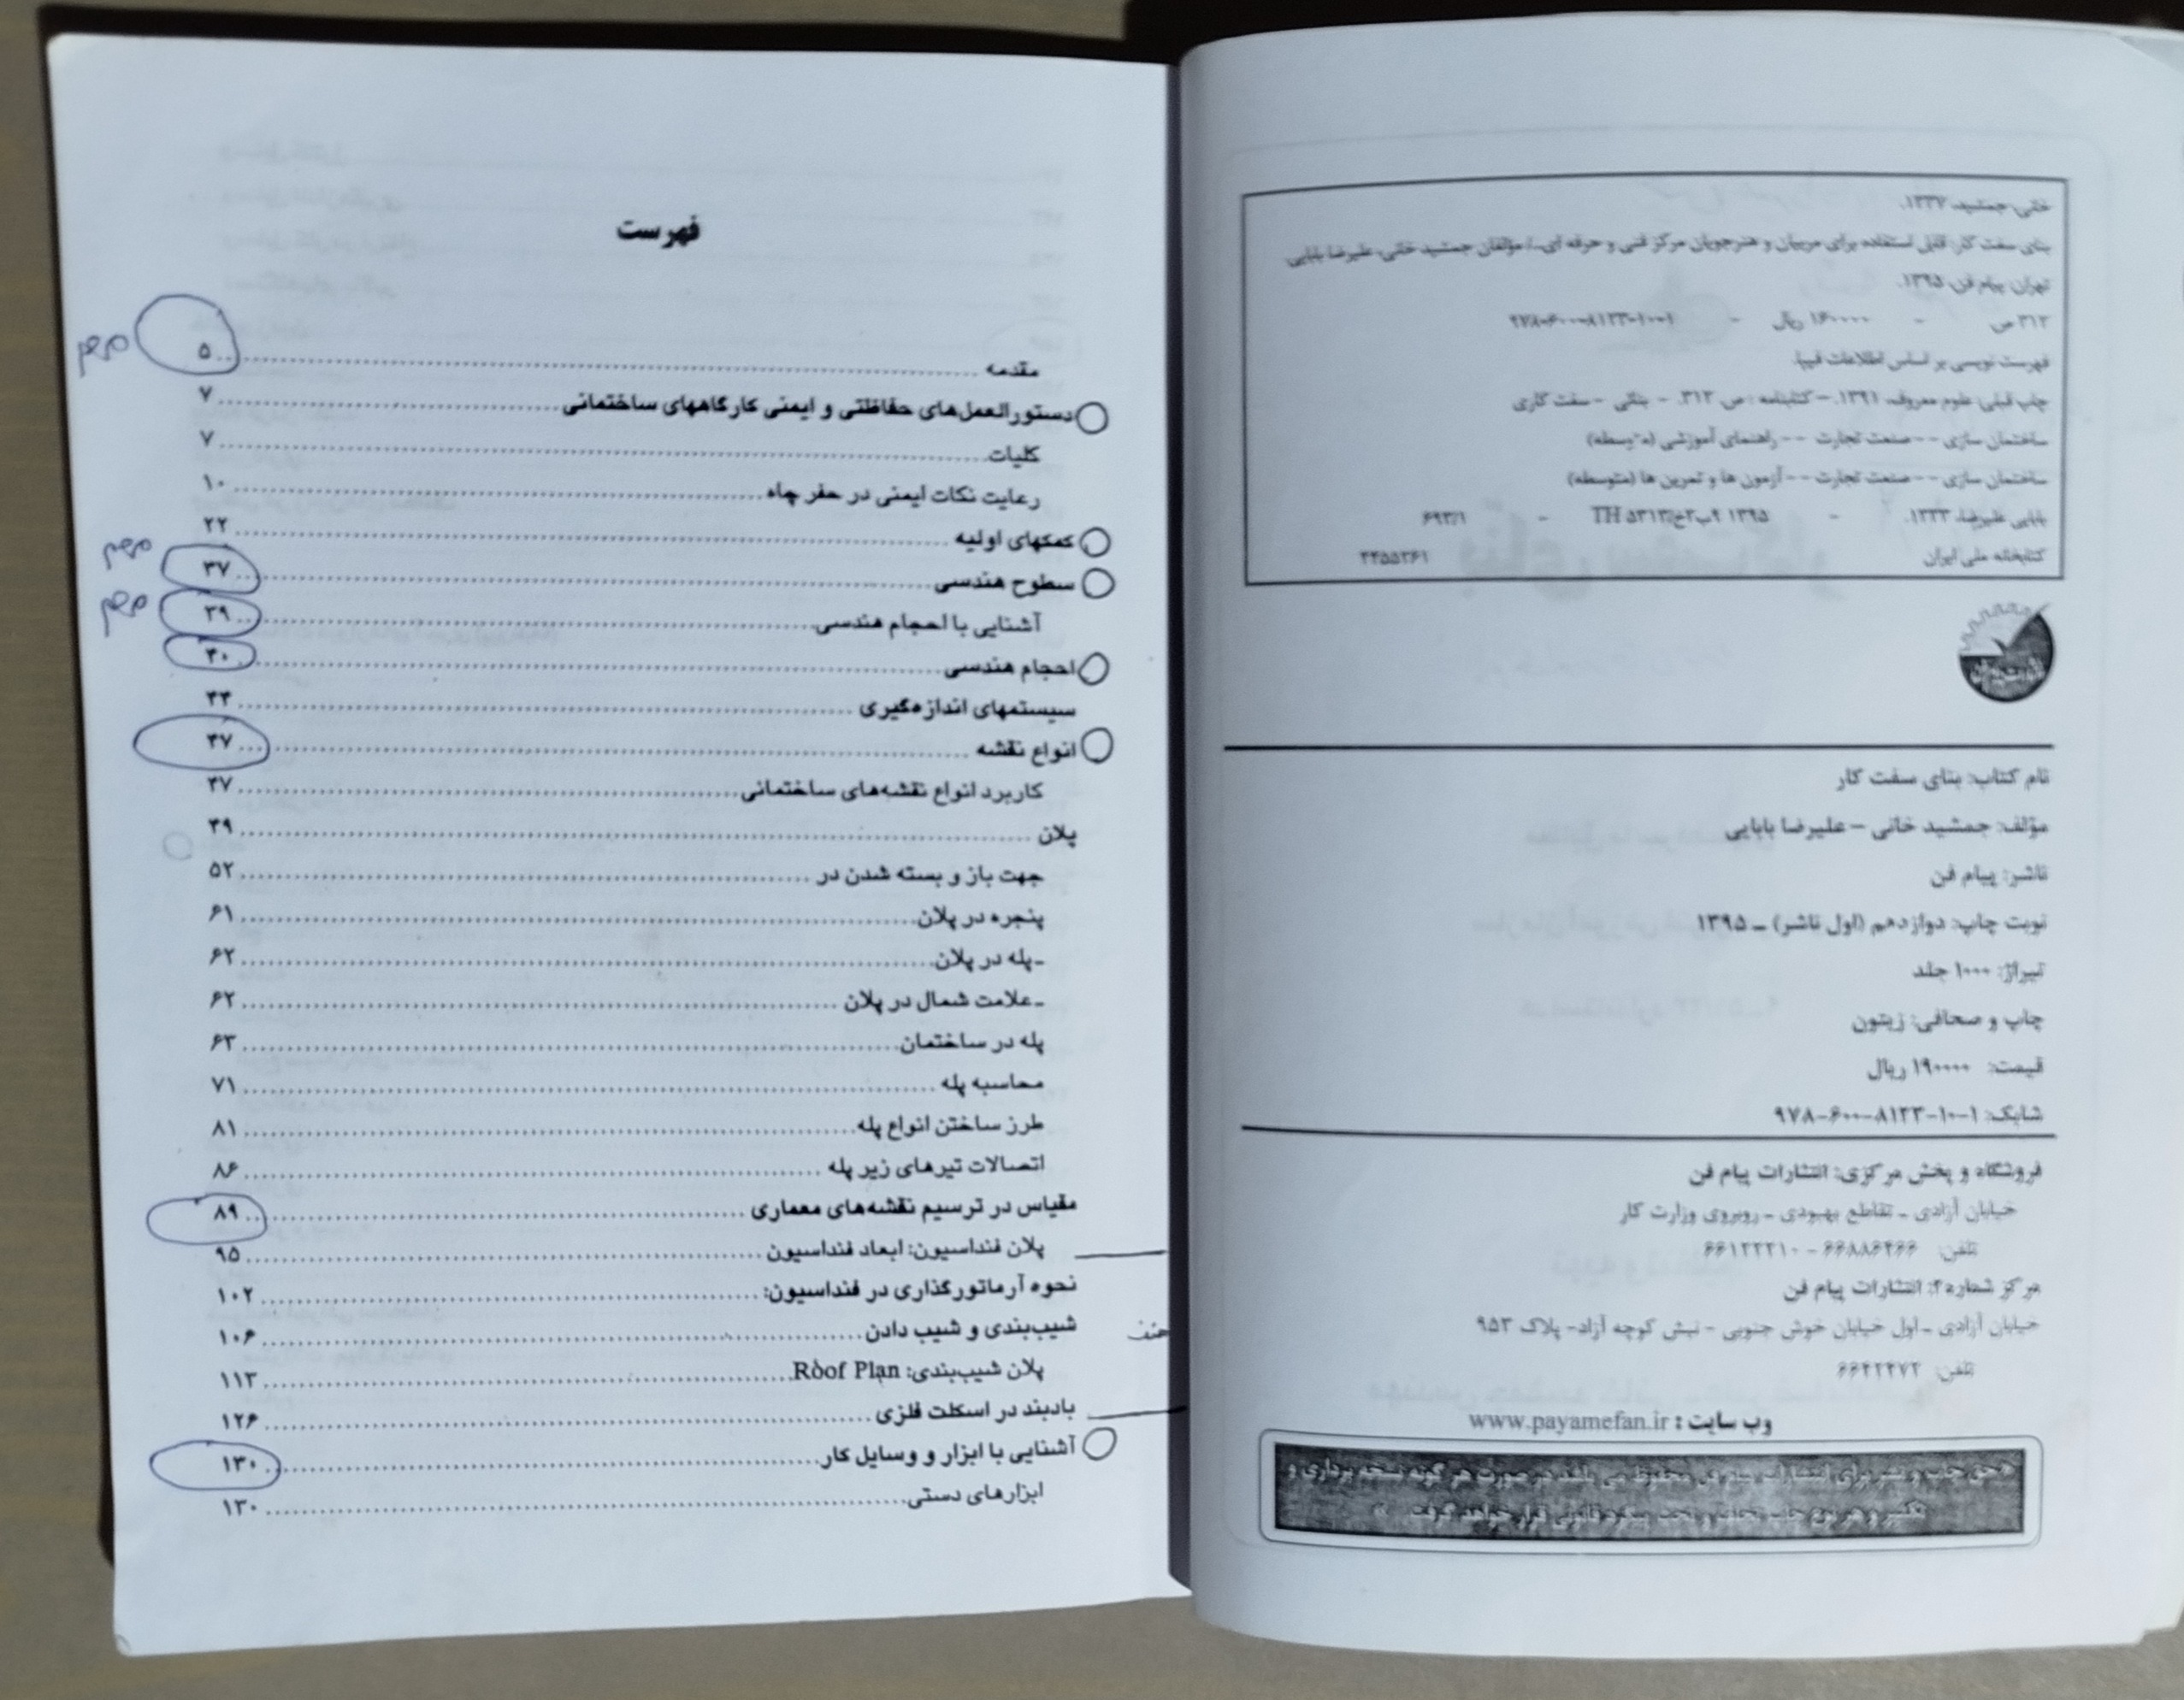 خانی، جمشید، ۱۳۳۷.
بنای سفت کار: قابل استفاده برای مربیان و هنرجویان مرکز فنی و حرفه ای.../ مؤلفان جمشید خانی، علیرضا بابایی.
تهران: پیام فن، ۱۳۹۵.
۳۱۲ ص - ۱۶۰۰۰۰ ریال - ۹۷۸-۶۰۰-۸۱۲۳-۱۰-۱
فهرست نویسی بر اساس اطلاعات فیپا.
چاپ قبلی: علوم معروف، ۱۳۹۱. – کتابنامه : ص. ۳۱۲. - بنائی - سفت کاری
ساختمان سازی - - صنعت تجارت - - راهنمای آموزشی (متوسطه)
ساختمان سازی - - صنعت تجارت - - آزمون ها و تمرین ها (متوسطه)
بابایی علیرضا، ۱۳۳۳. - ۱۳۹۵ ۹ب۲خ/TH ۵۳۱۳ - ۶۹۳/۱
کتابخانه ملی ایران ۴۲۵۵۳۶۱
نام کتاب: بنای سفت کار
مؤلف: جمشید خانی – علیرضا بابایی
ناشر: پیام فن
نوبت چاپ: دوازدهم (اول ناشر) ـ ۱۳۹۵
تیراژ: ۱۰۰۰ جلد
چاپ و صحافی: زیتون
قیمت: ۱۹۰۰۰۰ ریال
شابک: ۱-۱۰-۸۱۲۳-۶۰۰-۹۷۸
فروشگاه و پخش مرکزی: انتشارات پیام فن
خیابان آزادی ـ تقاطع بهبودی ـ روبروی وزارت کار
تلفن: ۶۶۸۸۶۴۶۶ - ۶۶۱۲۲۲۱۰
مرکز شماره ۲: انتشارات پیام فن
خیابان آزادی ـ اول خیابان خوش جنوبی - نبش کوچه آزاد- پلاک ۹۵۳
تلفن: ۶۶۴۲۲۴۷۲
وب سایت : www.payamefan.ir
فهرست
مقدمه ... ۵ مهم
دستورالعمل‌های حفاظتی و ایمنی کارگاههای ساختمانی ... ۷
کلیات ... ۷
رعایت نکات ایمنی در حفر چاه ... ۱۰
کمکهای اولیه ... ۲۲
سطوح هندسی ... ۳۷ مهم
آشنایی با احجام هندسی ... ۳۹ مهم
احجام هندسی ... ۴۰
سیستمهای اندازه‌گیری ... ۴۴
انواع نقشه ... ۴۷
کاربرد انواع نقشه‌های ساختمانی ... ۴۷
پلان ... ۴۹
جهت باز و بسته شدن در ... ۵۲
پنجره در پلان ... ۶۱
ـ پله در پلان ... ۶۲
ـ علامت شمال در پلان ... ۶۲
پله در ساختمان ... ۶۳
محاسبه پله ... ۷۱
طرز ساختن انواع پله ... ۸۱
اتصالات تیرهای زیر پله ... ۸۶
مقیاس در ترسیم نقشه‌های معماری ... ۸۹
پلان فنداسیون: ابعاد فنداسیون ... ۹۵
نحوه آرماتورگذاری در فنداسیون: ... ۱۰۲
حذف شیب‌بندی و شیب دادن ... ۱۰۶
پلان شیب‌بندی: Roof Plan ... ۱۱۳
بادبند در اسکلت فلزی ... ۱۲۶
آشنایی با ابزار و وسایل کار ... ۱۳۰
ابزارهای دستی ... ۱۳۰